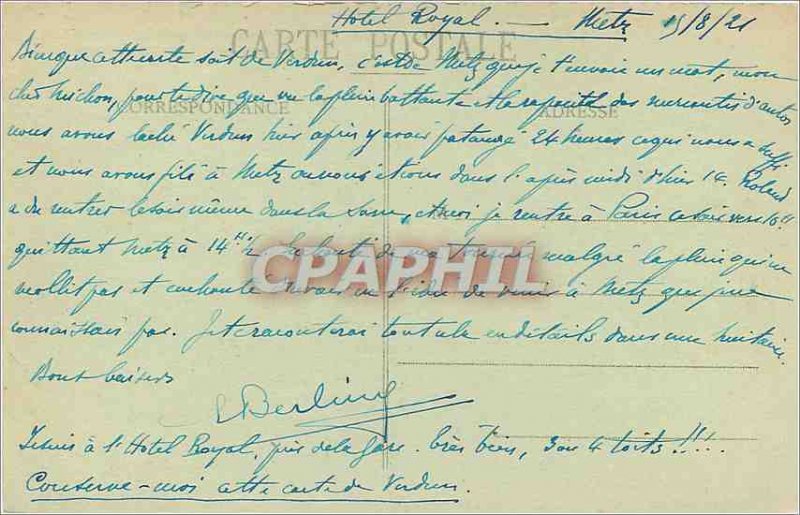 Hotel Royal. — Metz 15/8/21
CARTE POSTALE
Bien que cette carte soit de Verdun, c'est de Metz que je t'envoie un mot, mon
cher Michon, pour te dire que vu la pluie battante et la des d'autos
CORRESPONDANCE
ADRESSE
nous avons laché Verdun hier après y avoir patangé 24 heures ce qui nous a suffi
et nous avons filé à Metz où nous étions dans l'après midi d'hier 14. Roland
a du rentrer le soir même dans la Sarre, et moi je rentre à Paris ce soir vers 10H
quittant Metz à 14H 1/2 malgré la pluie qui ne
mollit pas et de venir à Metz que je ne
connaissais pas. Je te raconterai tout cela en détails dans une huitaine.
Bons baisers
CPAPHIL
Berline
Je suis à l'Hotel Royal, près de la gare. très bien, 4 !!!..
Conserve-moi cette carte de Verdun.